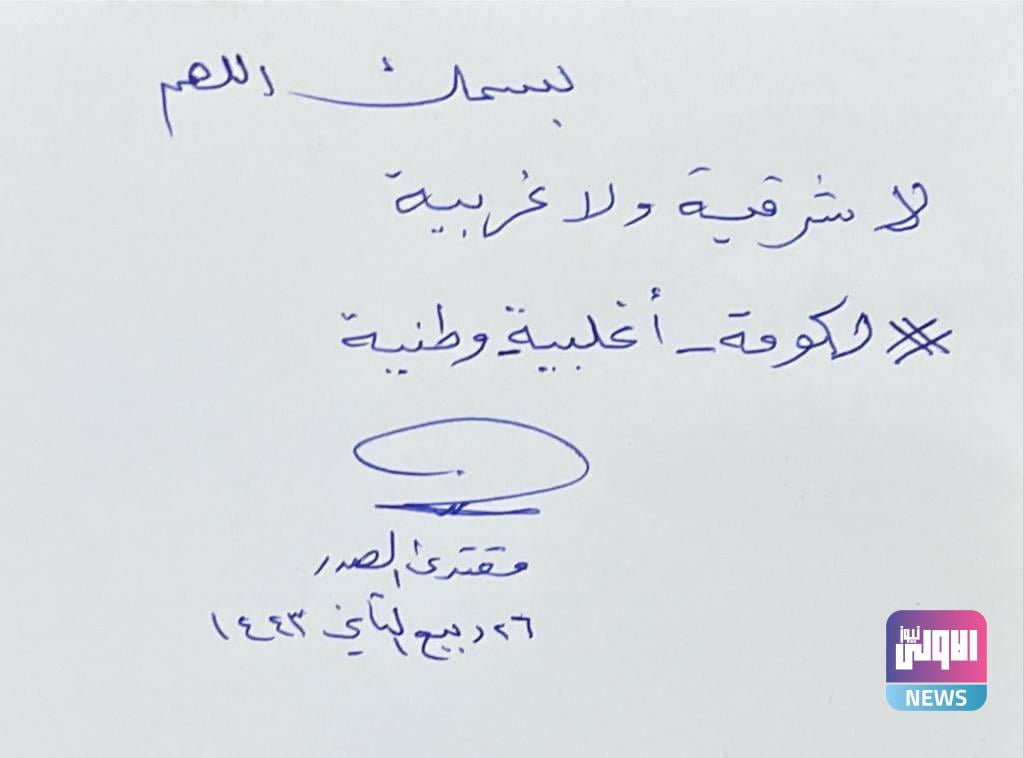 بسمك اللهم
لا شرقية ولا غربية
#حكومة_أغلبية_وطنية
مقتدى الصدر
٢٦ ربيع الثاني ١٤٤٣
الاولى نيوز
NEWS